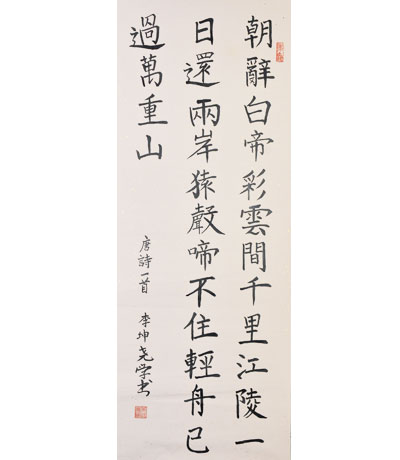 朝辭白帝彩雲間千里江陵一
日還兩岸猿聲啼不住輕舟已
過萬重山
唐詩一首 李坤尧学书